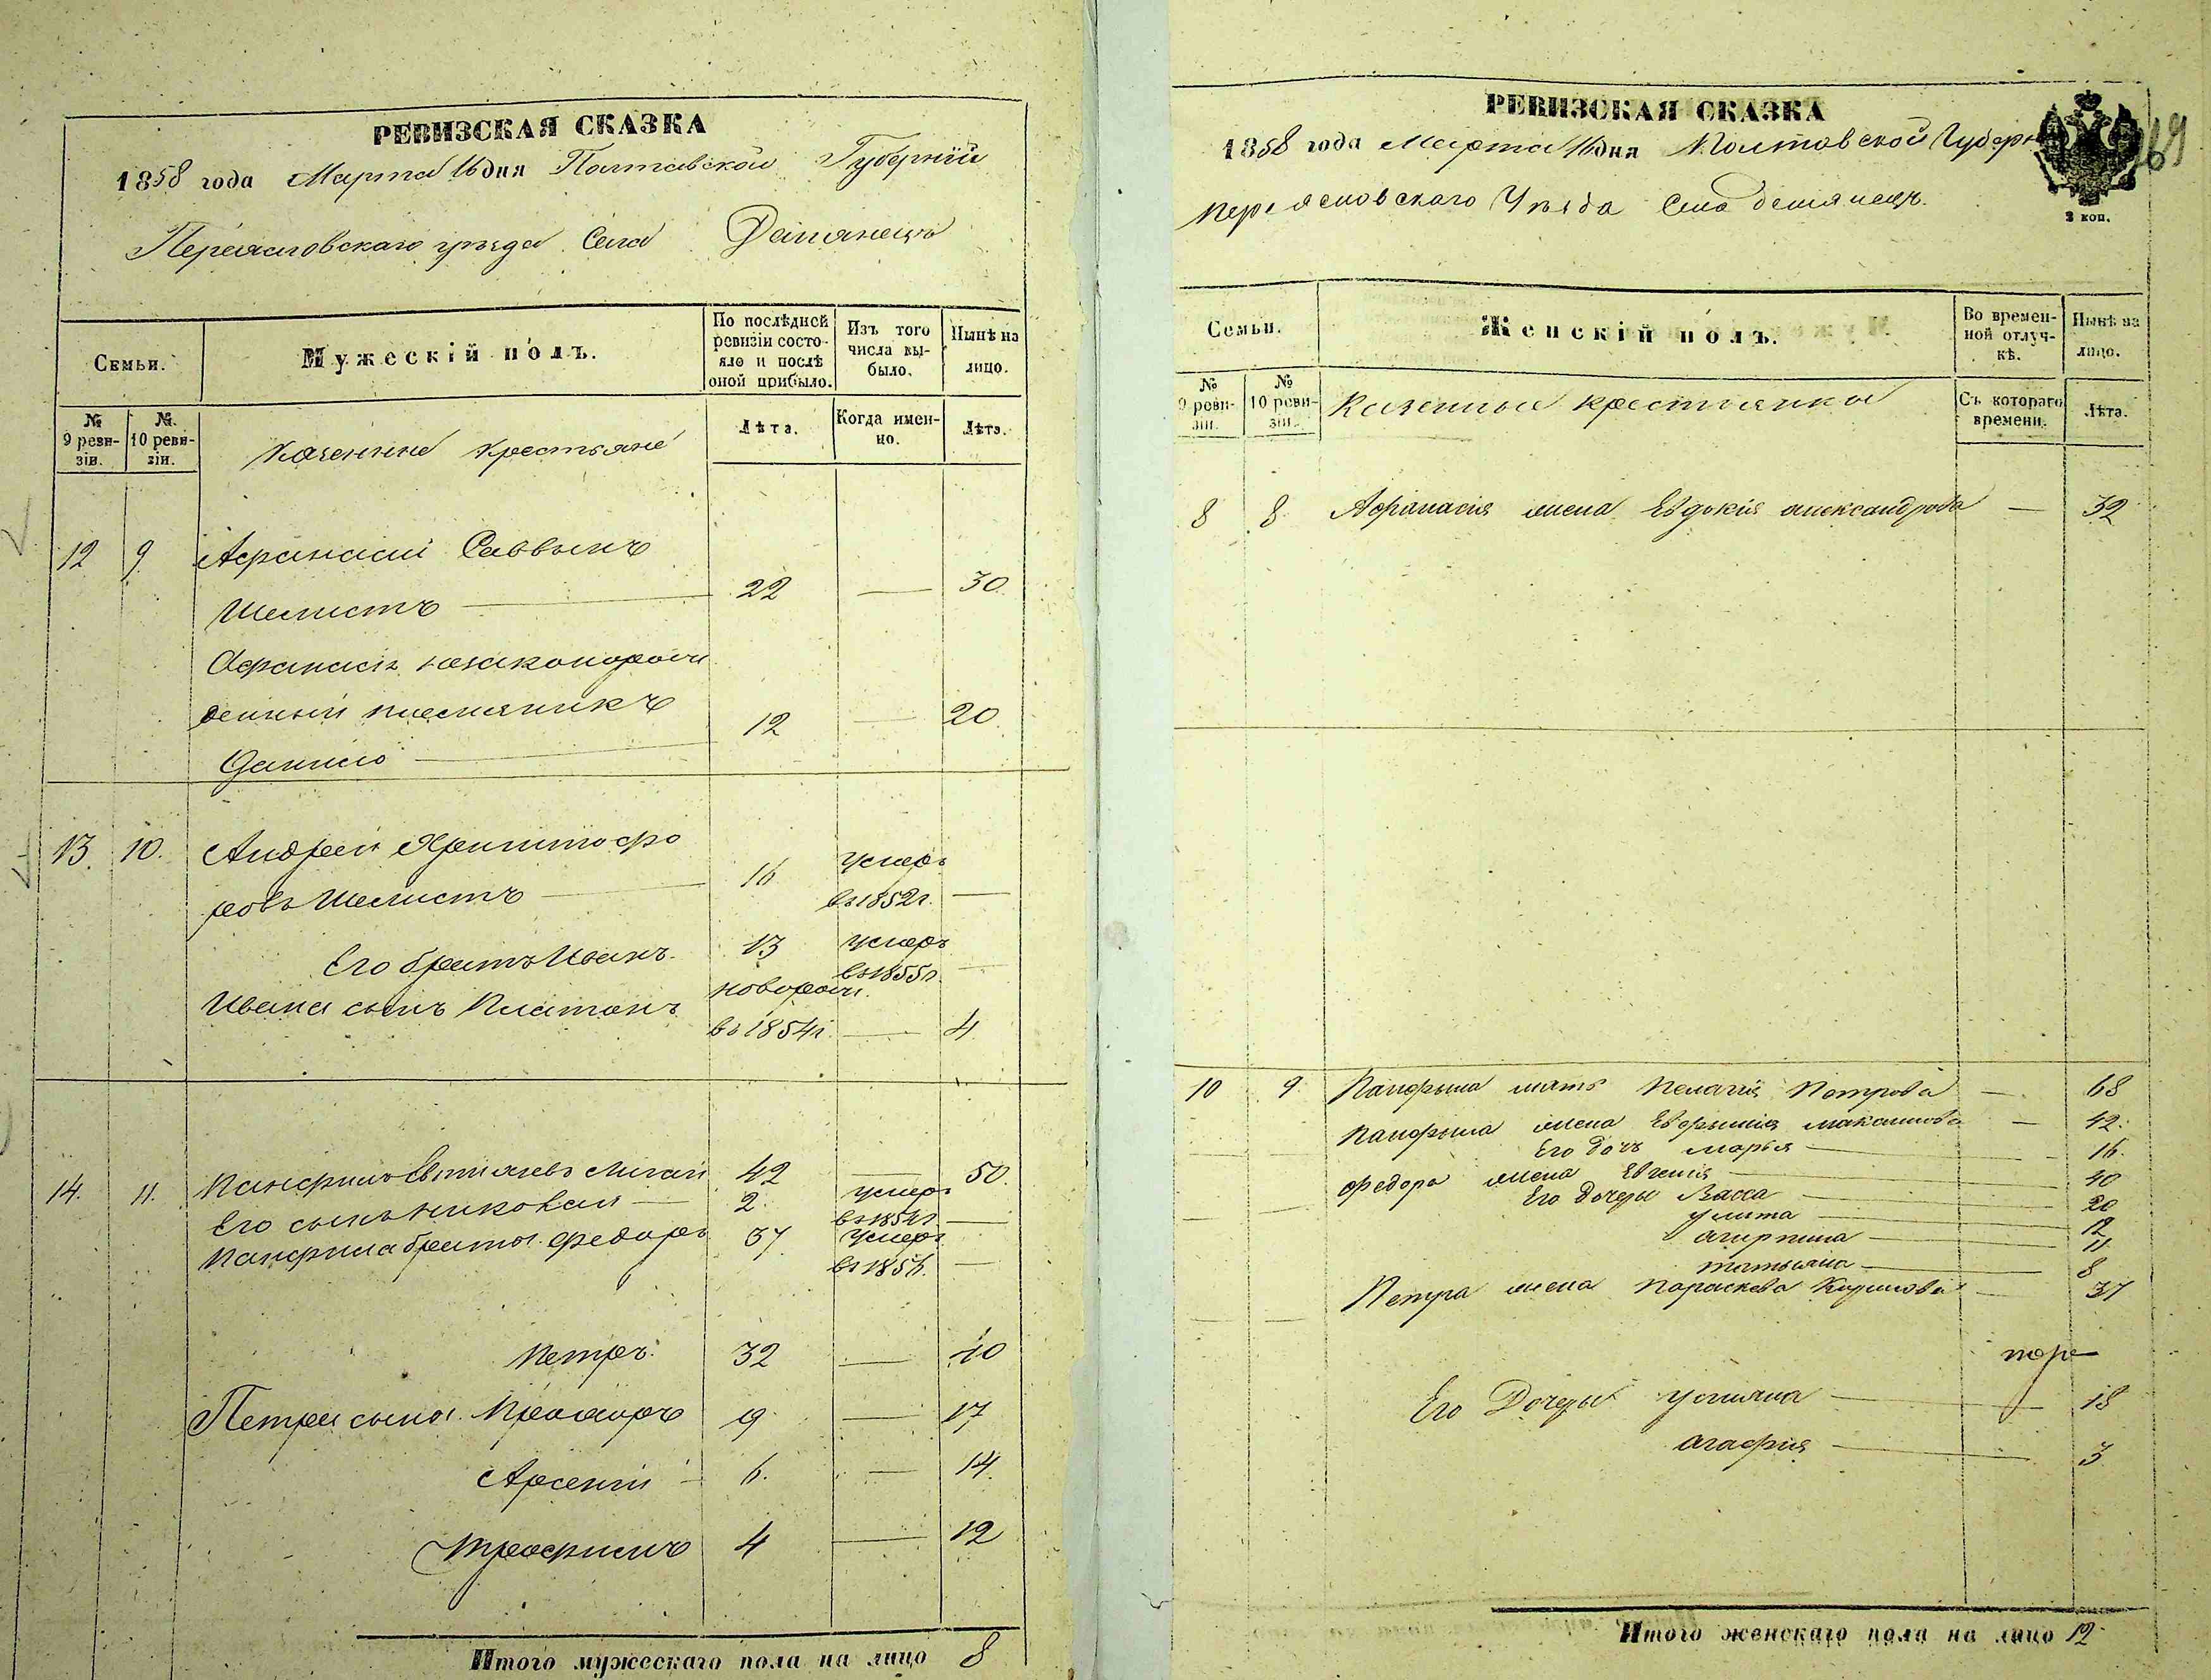 РЕВИЗСКАЯ СКАЗКА
1858 года Марта 16 дня Полтавской Губернiи
Переяславского уѣзда Села Демянецъ
Семьи.
Мужескiй полъ.
По послѣдней ревизiи состояло и послѣ оной прибыло.
Изъ того числа выбыло.
Нынѣ на лицо.
№ 9 ревизiи.
№ 10 ревизiи.
Казенние крестьяне
Лѣта.
Когда именно.
Лѣта.
12 9 Афанасiй Саввынъ
Шелистъ 22 — 30
Афанасiя незаконорож
денный племяникъ 12 — 20
Данило
13. 10. Андрей Христофо
ровъ Шелистъ 16 умеръ въ 1852 г. —
Его братъ Иванъ. 13 умеръ въ 1855 г. —
Ивана сынъ Платонъ новорож. въ 1854 г. — 4
14. 11. Панфилъ 42 — 50.
Его сынъ Николай 2. умеръ въ 1854 г —
Панфила братья. Федоръ 37 умеръ —
Петръ. 32 — 40
Петра сыны. Прохоръ 9 — 17
Арсенiй 6. — 14.
Трофимъ 4 — 12
Итого мужескаго пола на лицо 8
РЕВИЗСКАЯ СКАЗКА
69
1858 года Марта 16 дня Полтовской Губерн
Переясловского Уѣзда Села демянецъ.
2 коп.
Семьи.
Женскiй полъ.
Во временной отлучкѣ.
Нынѣ на лицо.
№ 9 ревизiи.
№ 10 ревизiи.
Казенные крестьянки
Съ котораго времени.
Лѣта.
8 8 Афанасiя жена Евдокiя александрова — 32
10 9 Панфыла мать Пелагiя Петрова — 68
Панфыла жена Евфымiя максимова — 42.
Его дочь марья — 16.
федора жена Евгенiя — 40
Его дочеры Васса — 20
улита — 12
агирпина — 11
татьяна — 8
Петра жена Параскева Кирилова — 37
Его Дочеры Улияна — 18
агафия — 3
Итого женскаго пола на лицо 12